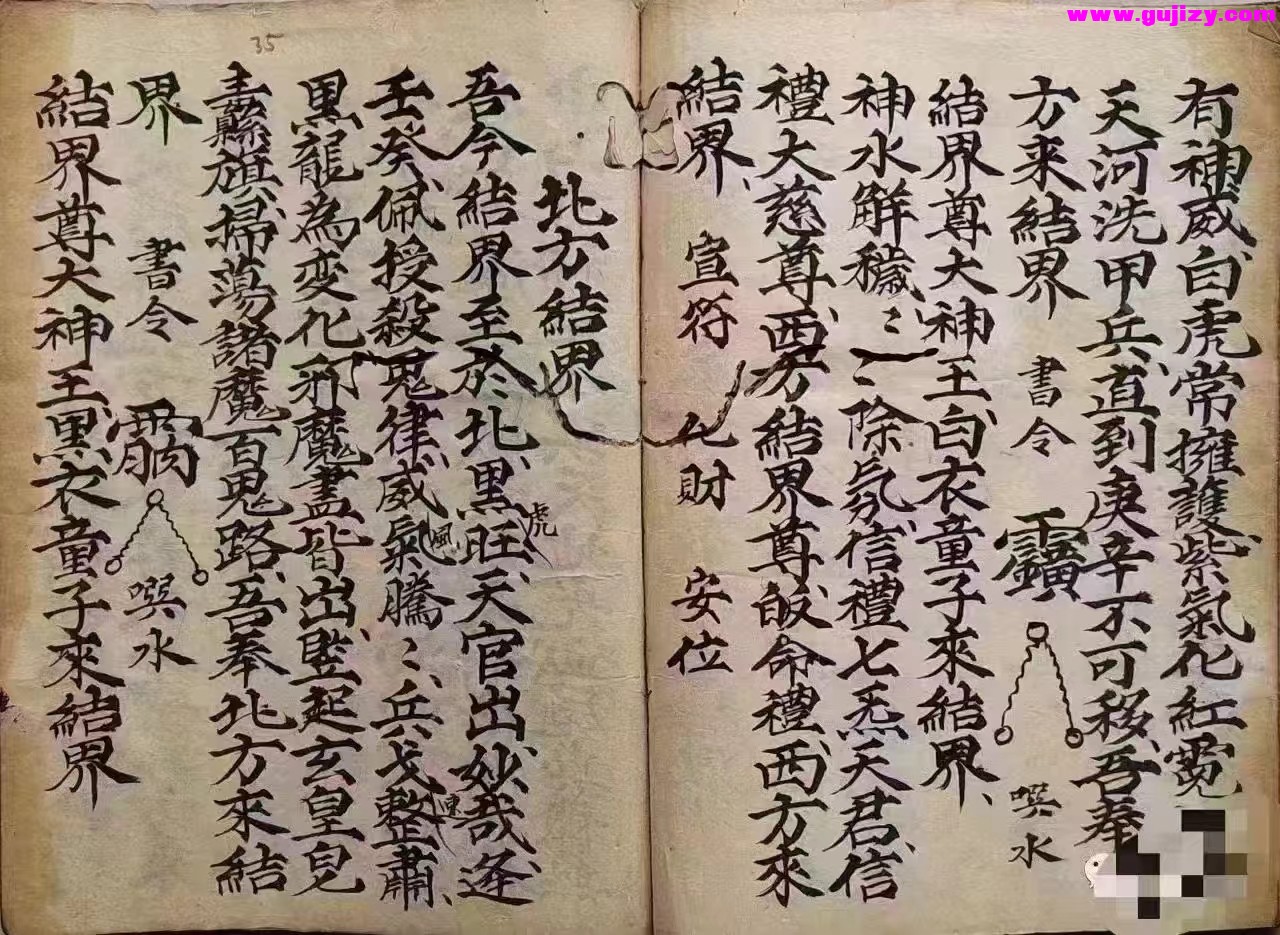 www.gujizy.com
35
有神威白虎常擁護紫氣化紅霓
天河洗甲兵直到庚辛不可移吾奉
方来結界 書令 噀水
結界尊大神王白衣童子來結界
神水解穢〻一〻除氛信禮七炁天君信
禮大慈尊西方結界尊皈命禮西方來
結界 宣符 化財 安位
北方結界
吾今結界至於北黑旺天官出妙哉逢
虎
壬癸佩授殺鬼律威氣騰〻兵戈整肅
風
連
黑龍為変化邪魔盡皆出竖起玄皇皂
纛旗掃蕩諸魔百鬼路吾奉北方來結
界 書令 噀水
結界尊大神王黑衣童子來結界